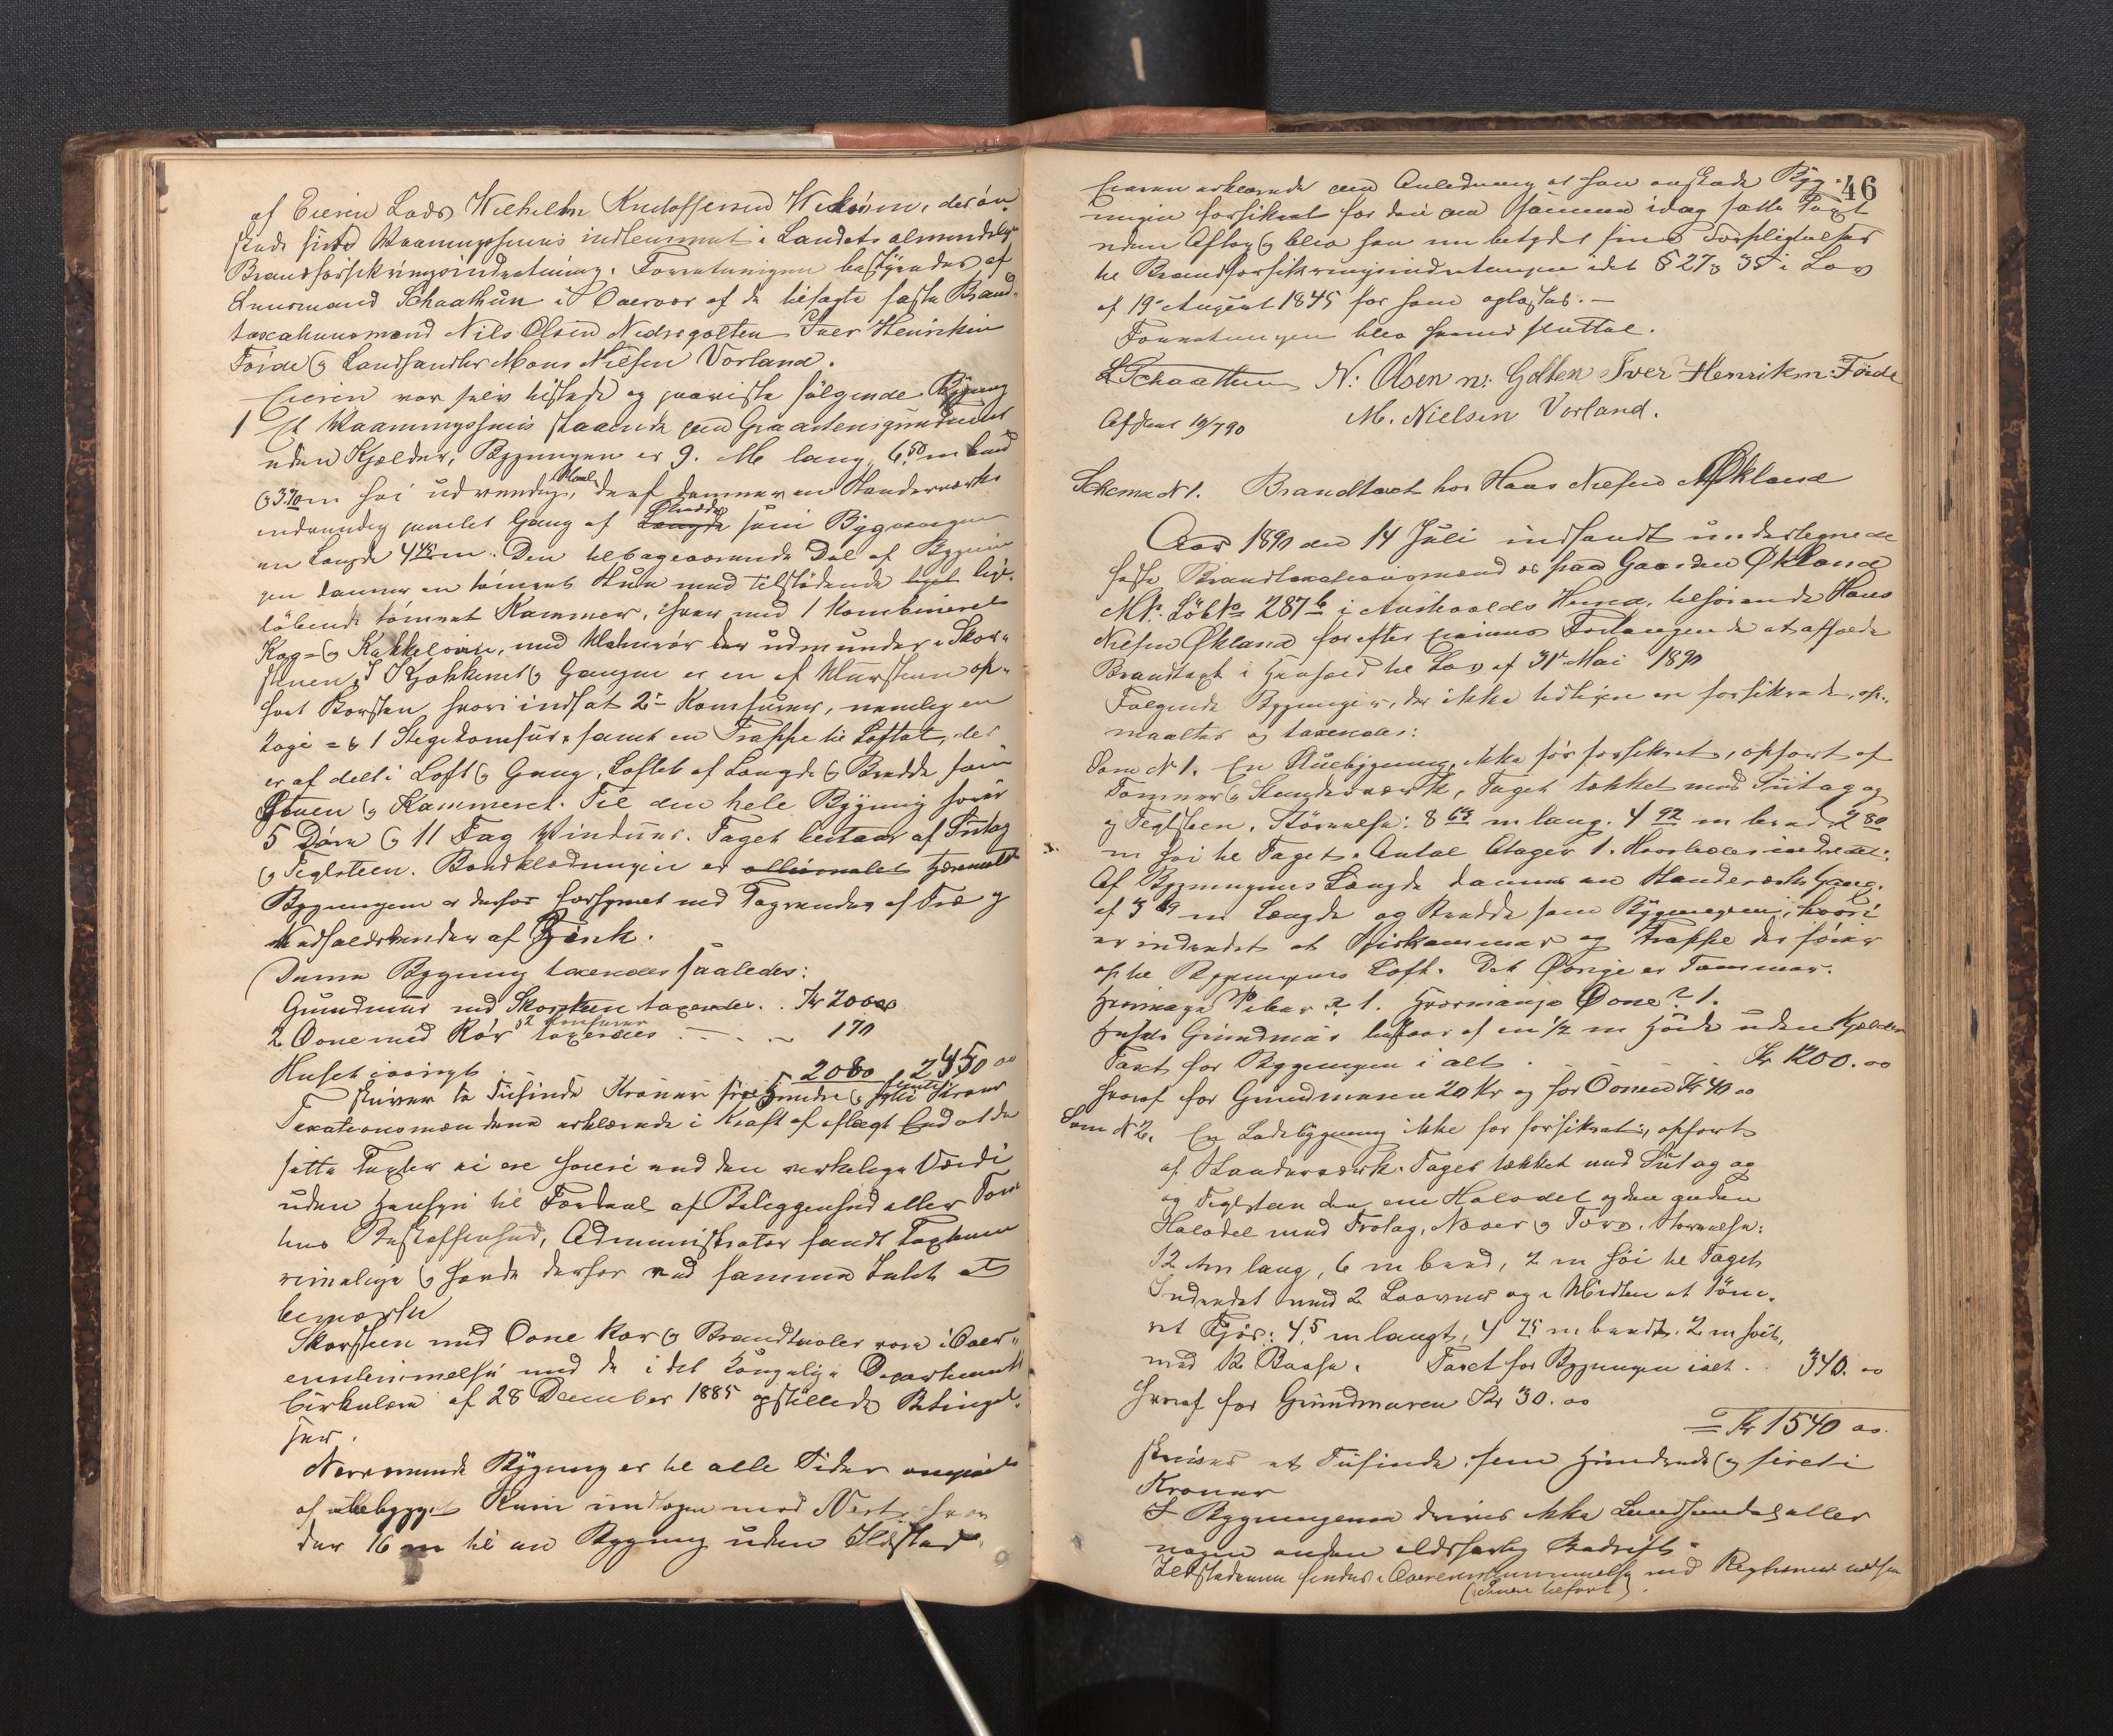 af Eieren Lods Wilhelm Knudssen Vikören, der ön-
skede sit Vaaningshuus indlemmet i Landets almindelige
Brandforsikringsindretning. Forretningen bestyredes af
Lensmand Schaathun i af de tilsagte faste Brand-
taxationsmænd Nils Olsen Nedregolten Iver Henriksen
Förde og Landhandler Mons Nielsen Vorland.
Eieren var selv tilstede og paaviste fölgende Bygning
1 Et Vaaningshuus staaende paa Graasteensgrundmur
uden Kjelder, Bygningen er 9. M lang, 6,50 m bred
og 3,70 m höi udvendig Maal, deraf danner en Standerværks
indvendig panelet Gang af Længde Bredde som Bygningen
en Længde 4,45 m. Den tilbageværende Del af Bygnin-
gen danner en tömret Stue med tilstödende lige-
löbende tömret Kammer, hvor med 1 kombineret
Kog- og Kakkelovn, med Malmrör der udmunder i Skor-
stenen. I Kjökkenet og Gangen er en af Mursteen op-
fört Skorsten, hvori indsat 2de Komfurer, nemlig en
Koge- & 1 Stegekomfur, samt en Trappe til Loftet, der
er afdelt i Loft og Gang, Loftet af Længde og Bredde som
Stuen og Kammeret. Til den hele Bygning hörer
5 Döre og 11 Fag Vinduer. Taget bestaar af Sutag
og Teglsteen. Bordklædningen er oliemalet
Bygningen er derfor forsynet med Tagrender af Træ og
Nedfaldsrender af Zink.
Denne Bygning taxeredes saaledes:
Grundmur med Skorsten taxeredes . . Kr 200 00
2 Ovne med Rör og 2 Komfurer taxeredes . . . 170
Huset iövrigt 2080 2450 00
skriver to Tusinde Kroner fire Hundre og femti Kroner
Taxationsmændene erklærede i Kraft af aflagt Eed at de
satte Taxter ei ere höiere end den virkelige Værdi
uden Hensyn til Fordeel af Beliggenhed eller Tom-
tens Beskaffenhed, Administrator fandt Taxterne
rimelige og havde derfor ved samme Intet at
bemærke
Skorsteen med Ovne Rör og Brandmurer vare i Over-
ensstemmelse med de i det Kongelige Departements
Cirkulære af 28 December 1885 opstillede Betingel-
ser.
Nærværende Bygning er til alle Sider omgivet
af ubebygget Rum undtagen mod Vest, hvor
der 16 m til en Bygning uden Ildsted.
46
Eieren erklærede paa Anledning at han önskede Byg-
ningen forsikret for den paa samme idag satte Taxt
uden Afslag og blev han nu betydet sine Forpligtelser
til Brandforsikringsindretningen idet § 27 & 35 i Lov
af 19 August 1845 for ham oplæstes. —
Forretningen blev hermed sluttet.
L Schaathun N: Olsen n: Golten Iver Henriksn: Förde
Afskrevet 19/7 90 M. Nielsen Vorland.
Schema № 1. Brandtaxt hos Hans Nielsen Økland
Aar 1890 den 14 Juli indfandt undertegnede
faste Brandtaxationsmænd os paa Gaarden Økland
M№. Löb№ 287 b i Austvolds Herred, tilhörende Hans
Nielsen Økland for efter Eierens Forlangende at afholde
Brandtaxt i Henhold til Lov af 31te Mai 1890
Fölgende Bygninger, der ikke tidligere ere forsikrede, op-
maaltes og taxeredes:
Som № 1. En Stuebygning, ikke för forsikret, opfört af
Tömmer og Standerværk, Taget tækket med Sutag og
og Teglsteen. Störrelse: 8 63 m lang. 4 92 m bred, 2 80
m höi til Taget. Antal Etager 1. Hvorledes indredet:
Af Bygningens Længde dannes en Standerværks Gang,
af 3 m Længde og Bredde som Bygningen, hvori
er indredet et Spiskammer og Trappe der förer
op til Bygningens Loft. Det Övrige er Tömmer.
Hvormange Piber? 1. Hvormange Ovne? 1.
Husets Grundmur bestaar af en 1/2 m Höide uden Kjelder
Taxt for Bygningen i alt . . . Kr 1200. 00
hvoraf for Grundmuren 20 Kr og for Ovnen Kr 40 00
Som № 2. En Ladebygning ikke för forsikret, opfört
af Standerværk. Taget tækket med Sutag og
og Teglsten den ene Halvdel og den anden
Halvdel med Trotag, Næver og Torv. Störrelse:
12 m lang, 6 m bred, 2 m höi til Taget
Indredet med 2 Loovner og i Midten et Töm-
ret Fjös: 4,5 m langt, 4 75 m bredt. 2 m höit,
med 12 Baase. Taxt for Bygningen ialt . . 340. 00
hvoraf for Grundmuren Kr 30. 00
= Kr 1540 00
skriver et Tusinde, fem Hundrede og firti
Kroner
I Bygningerne drives ikke Landhandel eller
nogen anden ildsfarlig Bedrift.
Ildstederne findes i Overensstemmelse med Reglement